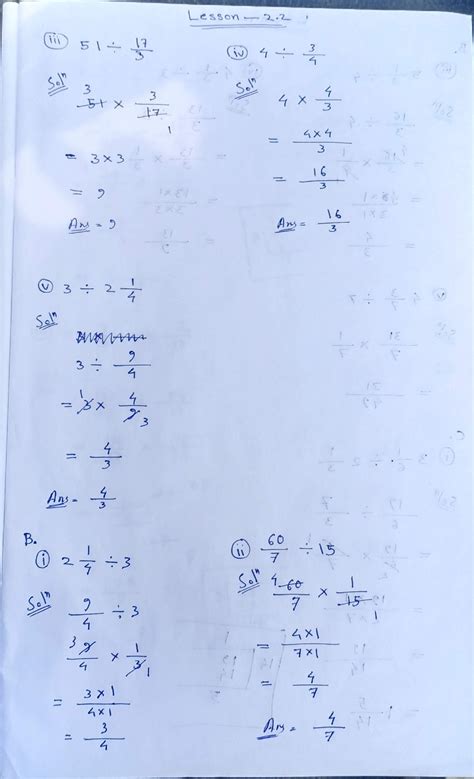 Lesson - 2.2
(iii) 51 ÷ 17/3
Solⁿ
3
51 × 3/17 1
= 3×3
= 9
Ans = 9
(iv) 4 ÷ 3/4
Solⁿ
4 × 4/3
= 4×4/3
= 16/3
Ans = 16/3
(v) 3 ÷ 2 1/4
Solⁿ
3 ÷ 9/4
= 1 3 × 4/9 3
= 4/3
Ans = 4/3
B.
(i) 2 1/4 ÷ 3
Solⁿ
9/4 ÷ 3
3 9/4 × 1/3 1
= 3×1/4×1
= 3/4
(ii) 60/7 ÷ 15
Solⁿ
4 60/7 × 1/15 1
= 4×1/7×1
= 4/7
Ans = 4/7